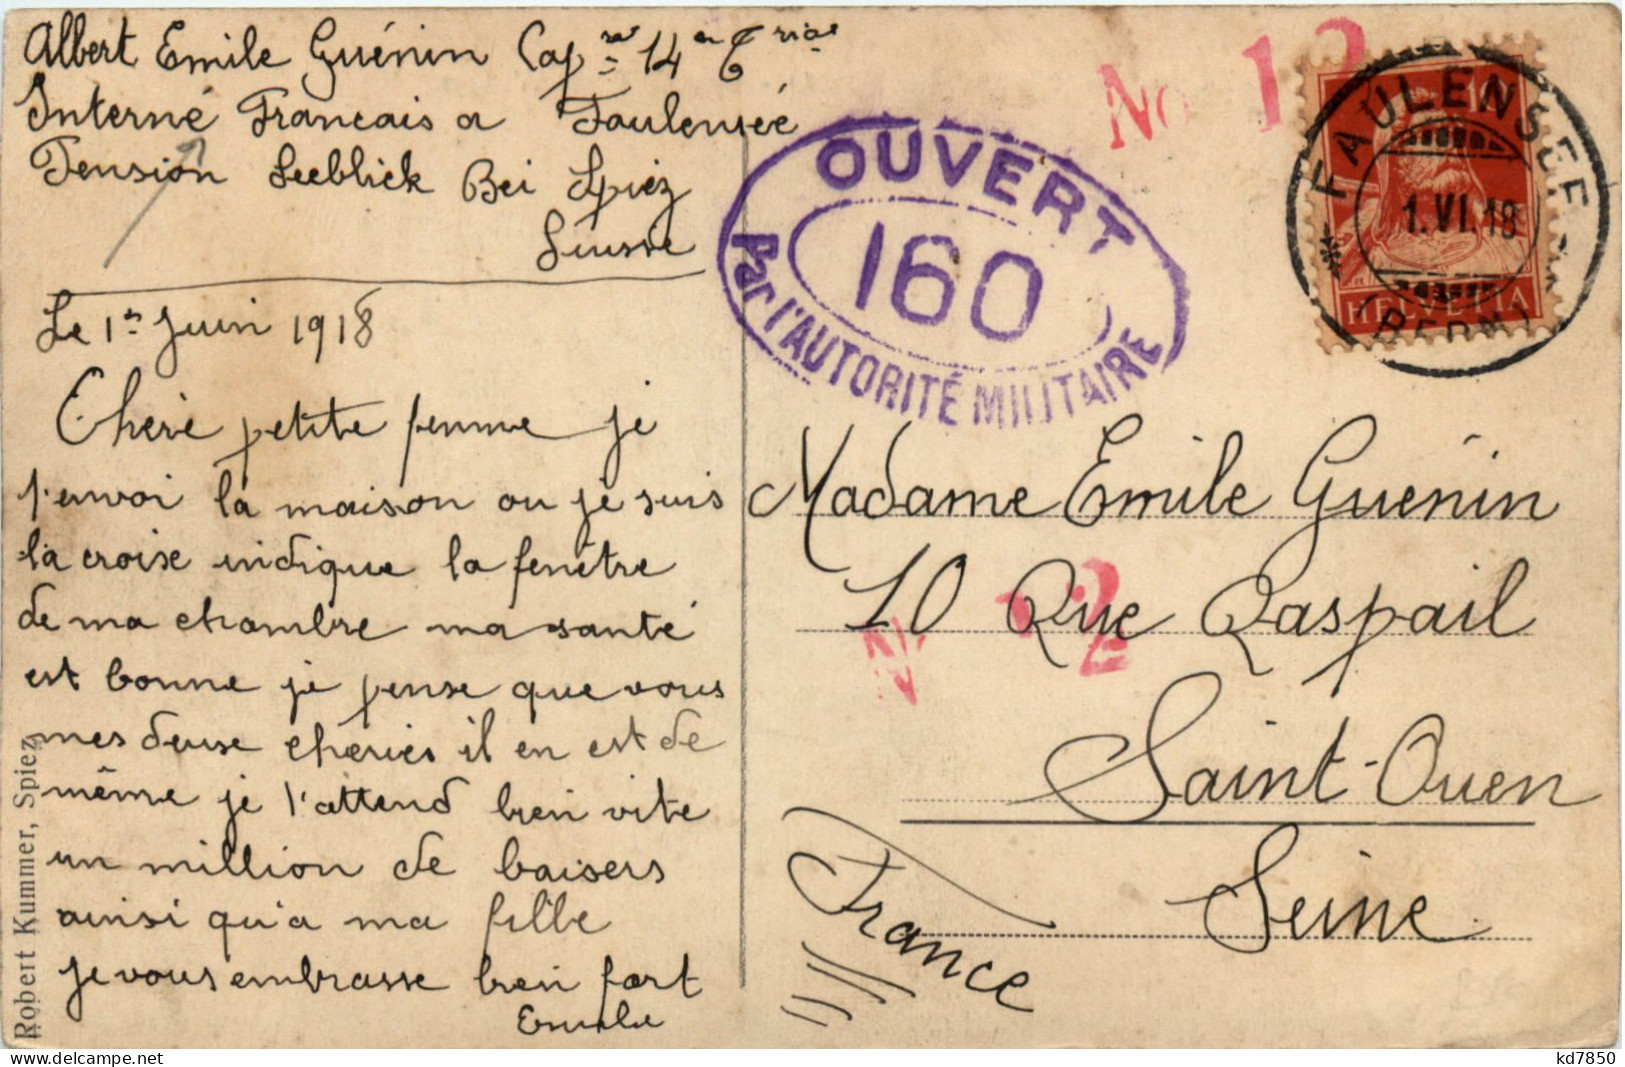 Albert Emile Guénin Cap re 14 en Crie
Interné Francais a Faulensée
Pension Seeblick Bei Spiez
Suisse
Le 1er Juin 1918
Chère petite femme je
t'envoi la maison ou je suis
la croise indique la fenêtre
de ma chambre ma santé
est bonne je pense que vous
mes deuse cheries il en est de
même je t'attend bien vite
un million de baisers
ainsi qu'a ma fille
je vous embrasse bien fort
Emile
Robert Kummer, Spiez
OUVERT
160
Par l'AUTORITÉ MILITAIRE
No 12
FAULENSEE
1.VI.18
(BERN)
10
HELVETIA
Madame Emile Guénin
10 Rue Raspail
N 12
Saint-Ouen
Seine
France
kd7850